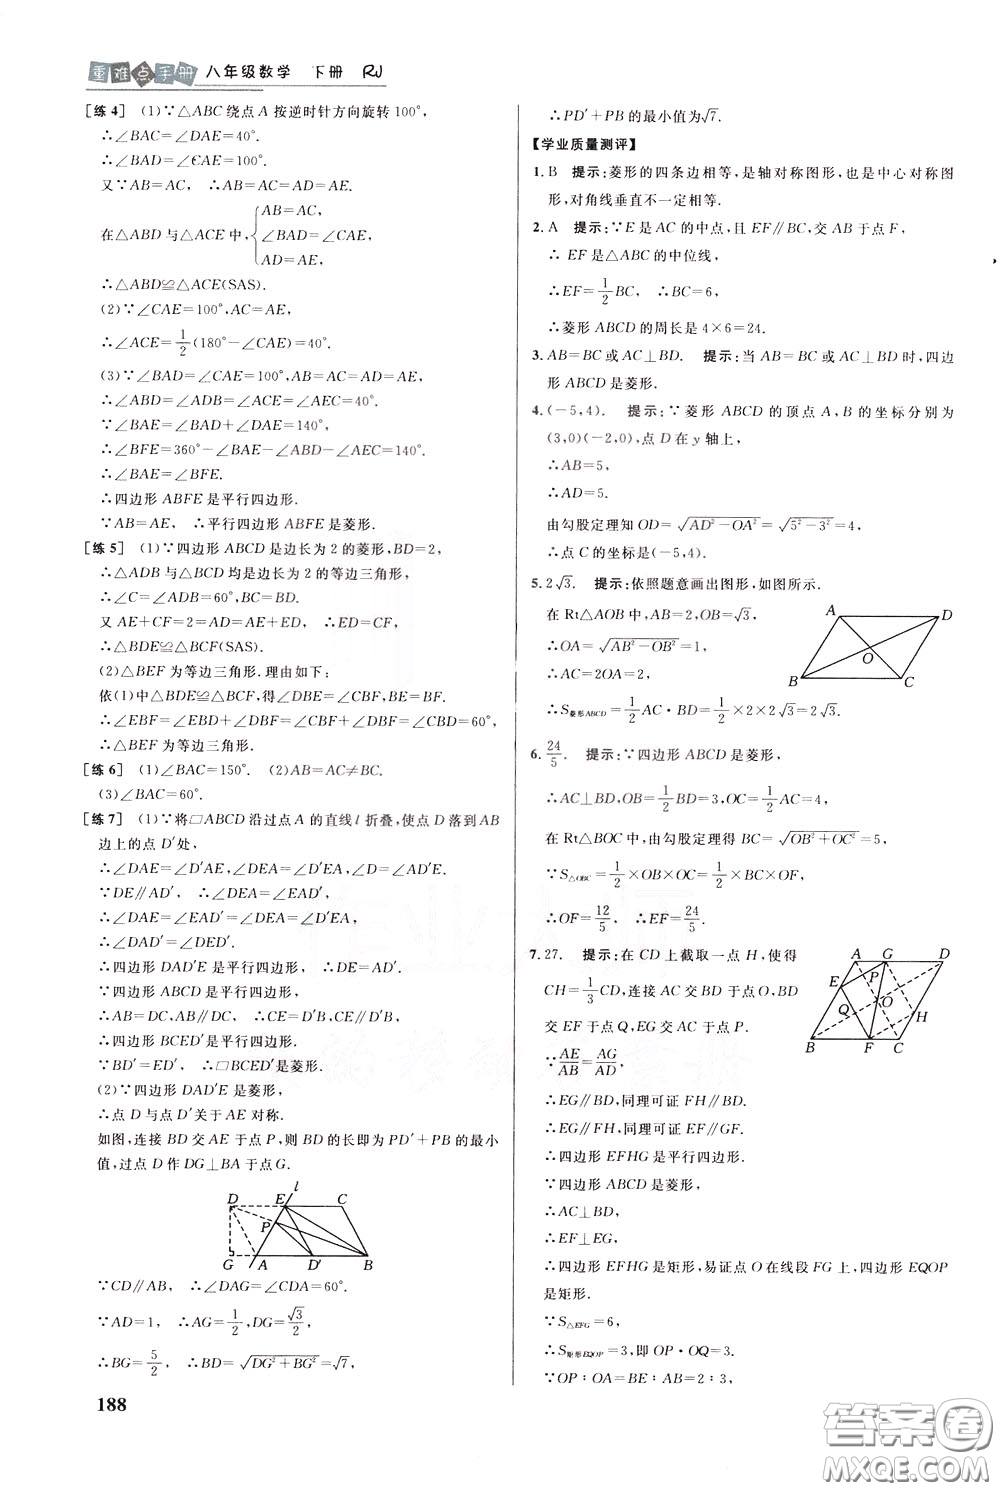 重难点手册 八年级数学 下册 RJ
[练 4] (1)∵△ABC 绕点 A 按逆时针方向旋转 100°,
∴∠BAC=∠DAE=40°.
∴∠BAD=∠CAE=100°.
又∵AB=AC, ∴AB=AC=AD=AE.
在△ABD 与△ACE 中,
AB=AC,
∠BAD=∠CAE,
AD=AE,
∴△ABD≌△ACE(SAS).
(2)∵∠CAE=100°,AC=AE,
∴∠ACE=1/2(180°-∠CAE)=40°.
(3)∵∠BAD=∠CAE=100°,AB=AC=AD=AE,
∴∠ABD=∠ADB=∠ACE=∠AEC=40°.
∴∠BAE=∠BAD+∠DAE=140°,
∴∠BFE=360°-∠BAE-∠ABD-∠AEC=140°.
∴∠BAE=∠BFE.
∴四边形 ABFE 是平行四边形.
∵AB=AE, ∴平行四边形 ABFE 是菱形.
[练 5] (1)∵四边形 ABCD 是边长为 2 的菱形,BD=2,
∴△ADB 与△BCD 均是边长为 2 的等边三角形,
∴∠C=∠ADB=60°,BC=BD.
又 AE+CF=2=AD=AE+ED, ∴ED=CF,
∴△BDE≌△BCF(SAS).
(2)△BEF 为等边三角形.理由如下:
依(1)中△BDE≌△BCF,得∠DBE=∠CBF,BE=BF.
∴∠EBF=∠EBD+∠DBF=∠CBF+∠DBF=∠CBD=60°,
∴△BEF 为等边三角形.
[练 6] (1)∠BAC=150°. (2)AB=AC≠BC.
(3)∠BAC=60°.
[练 7] (1)∵将□ABCD 沿过点 A 的直线 l 折叠,使点 D 落到 AB
边上的点 D′处,
∴∠DAE=∠D′AE,∠DEA=∠D′EA,∠D=∠AD′E.
∵DE∥AD′, ∴∠DEA=∠EAD′,
∴∠DAE=∠EAD′=∠DEA=∠D′EA,
∴∠DAD′=∠DED′.
∴四边形 DAD′E 是平行四边形, ∴DE=AD′.
∵四边形 ABCD 是平行四边形,
∴AB=DC,AB∥DC, ∴CE=D′B,CE∥D′B,
∴四边形 BCED′是平行四边形.
∵BD′=ED′, ∴□BCED′是菱形.
(2)∵四边形 DAD′E 是菱形,
∴点 D 与点 D′关于 AE 对称.
如图,连接 BD 交 AE 于点 P,则 BD 的长即为 PD′+PB 的最小
值,过点 D 作 DG⊥BA 于点 G.
D E l C
P
G A D′ B
∵CD∥AB, ∴∠DAG=∠CDA=60°.
∵AD=1, ∴AG=1/2,DG=√3/2,
∴BG=5/2, ∴BD=√(DG²+BG²)=√7,
188
∴PD′+PB 的最小值为√7.
【学业质量测评】
1. B 提示:菱形的四条边相等,是轴对称图形,也是中心对称图
形,对角线垂直不一定相等.
2. A 提示:∵E 是 AC 的中点,且 EF∥BC,交 AB 于点 F,
∴ EF 是△ABC 的中位线,
∴EF=1/2BC, ∴BC=6,
∴菱形 ABCD 的周长是 4×6=24.
3. AB=BC 或 AC⊥BD. 提示:当 AB=BC 或 AC⊥BD 时,四边
形 ABCD 是菱形.
4. (-5,4). 提示:∵菱形 ABCD 的顶点 A,B 的坐标分别为
(3,0)(-2,0),点 D 在 y 轴上,
∴AB=5,
∴AD=5.
由勾股定理知 OD=√(AD²-OA²)=√(5²-3²)=4,
∴点 C 的坐标是(-5,4).
5. 2√3. 提示:依照题意画出图形,如图所示.
在 Rt△AOB 中,AB=2,OB=√3,
∴OA=√(AB²-OB²)=1,
∴AC=2OA=2,
∴S菱形ABCD=1/2AC·BD=1/2×2×2√3=2√3.
A D
O
B C
6. 24/5. 提示:∵四边形 ABCD 是菱形,
∴AC⊥BD,OB=1/2BD=3,OC=1/2AC=4,
在 Rt△BOC 中,由勾股定理得 BC=√(OB²+OC²)=5,
∵S△OBC=1/2×OB×OC=1/2×BC×OF,
∴OF=12/5, ∴EF=24/5.
7. 27. 提示:在 CD 上截取一点 H,使得
CH=1/3CD,连接 AC 交 BD 于点 O,BD
交 EF 于点 Q,EG 交 AC 于点 P.
∵AE/AB=AG/AD,
∴EG∥BD,同理可证 FH∥BD.
∴EG∥FH,同理可证 EF∥GF.
∴四边形 EFHG 是平行四边形.
∵四边形 ABCD 是菱形,
∴AC⊥BD,
∴EF⊥EG,
∴四边形 EFHG 是矩形,易证点 O 在线段 FG 上,四边形 EQOP
是矩形.
∵S△EFG=6,
∴S矩形EQOP=3,即 OP·OQ=3.
∵OP∶OA=BE∶AB=2∶3,
A G D
E P
Q O H
B F C
答案卷
MXQE.COM